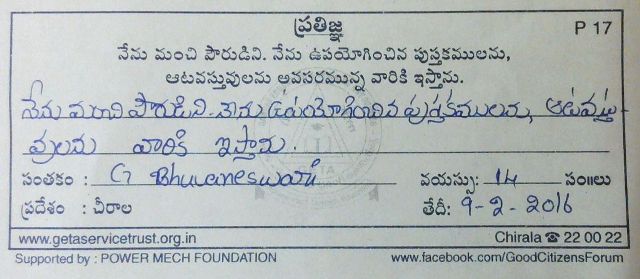 ప్రతిజ్ఞ
P 17
నేను మంచి పౌరుడిని. నేను ఉపయోగించిన పుస్తకములను,
ఆటవస్తువులను అవసరమున్న వారికి ఇస్తాను.
నేను మంచి పౌరుడిని. నేను ఉపయోగించిన పుస్తకములను, ఆటవస్తు
వులను వారికి ఇస్తాను.
సంతకం : G Bhuvaneswari వయస్సు: 14 సం॥లు
ప్రదేశం : చీరాల తేదీ: 9-2-2016
www.getaservicetrust.org.in Chirala ☎ 22 00 22
Supported by : POWER MECH FOUNDATION www.facebook.com/GoodCitizensForum